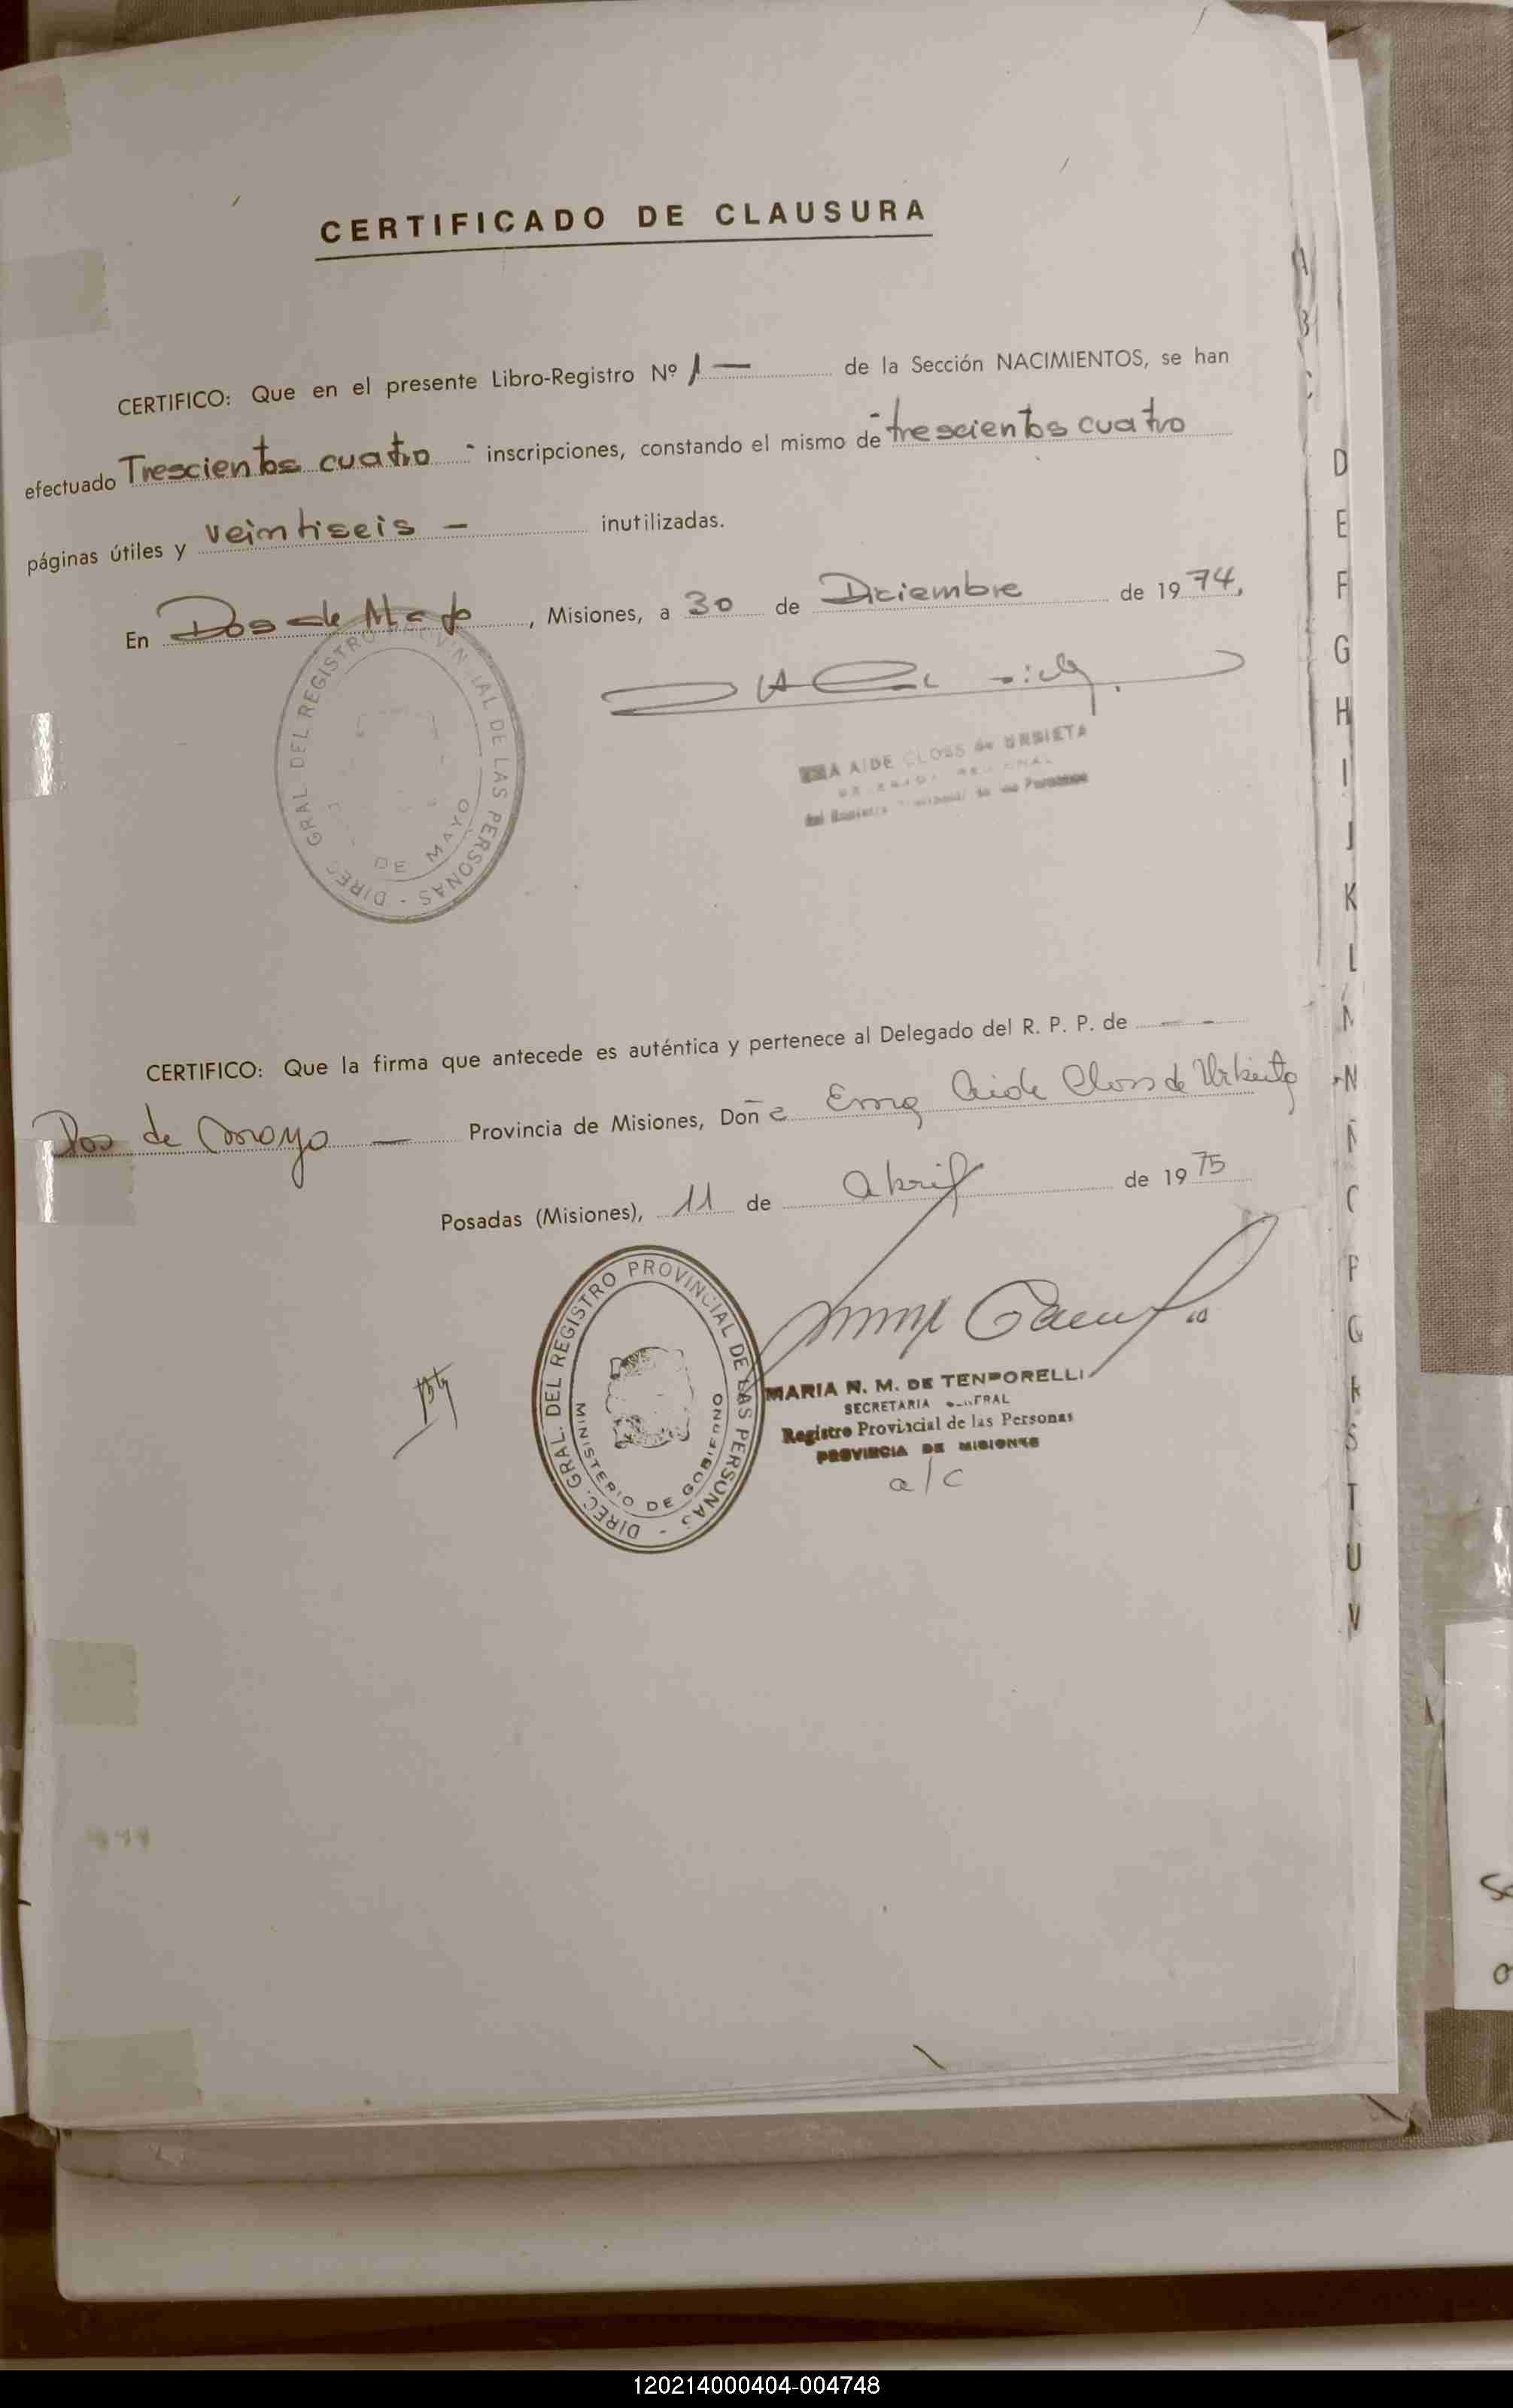 CERTIFICADO DE CLAUSURA
CERTIFICO: Que en el presente Libro-Registro Nº 1 — de la Sección NACIMIENTOS, se han
efectuado Trescientos cuatro - inscripciones, constando el mismo de trescientos cuatro
páginas útiles y veintiseis — inutilizadas.
En Dos de Mayo, Misiones, a 30 de Diciembre de 1974,
DIREC. GRAL. DEL REGISTRO PROVINCIAL DE LAS PERSONAS -
DE MAYO
AIDE CLOSS de URBIETA
CERTIFICO: Que la firma que antecede es auténtica y pertenece al Delegado del R. P. P. de — -
Dos de Mayo — Provincia de Misiones, Doña Ema Aide Closs de Urbieta
Posadas (Misiones), 11 de abril de 1975
DIREC. GRAL. DEL REGISTRO PROVINCIAL DE LAS PERSONAS -
MINISTERIO DE GOBIERNO
MARIA N. M. DE TEMPORELLI
SECRETARIA GENERAL
Registro Provincial de las Personas
PROVINCIA DE MISIONES
a/c
A
B
C
D
E
F
G
H
I
J
K
L
N
U
V
120214000404-004748